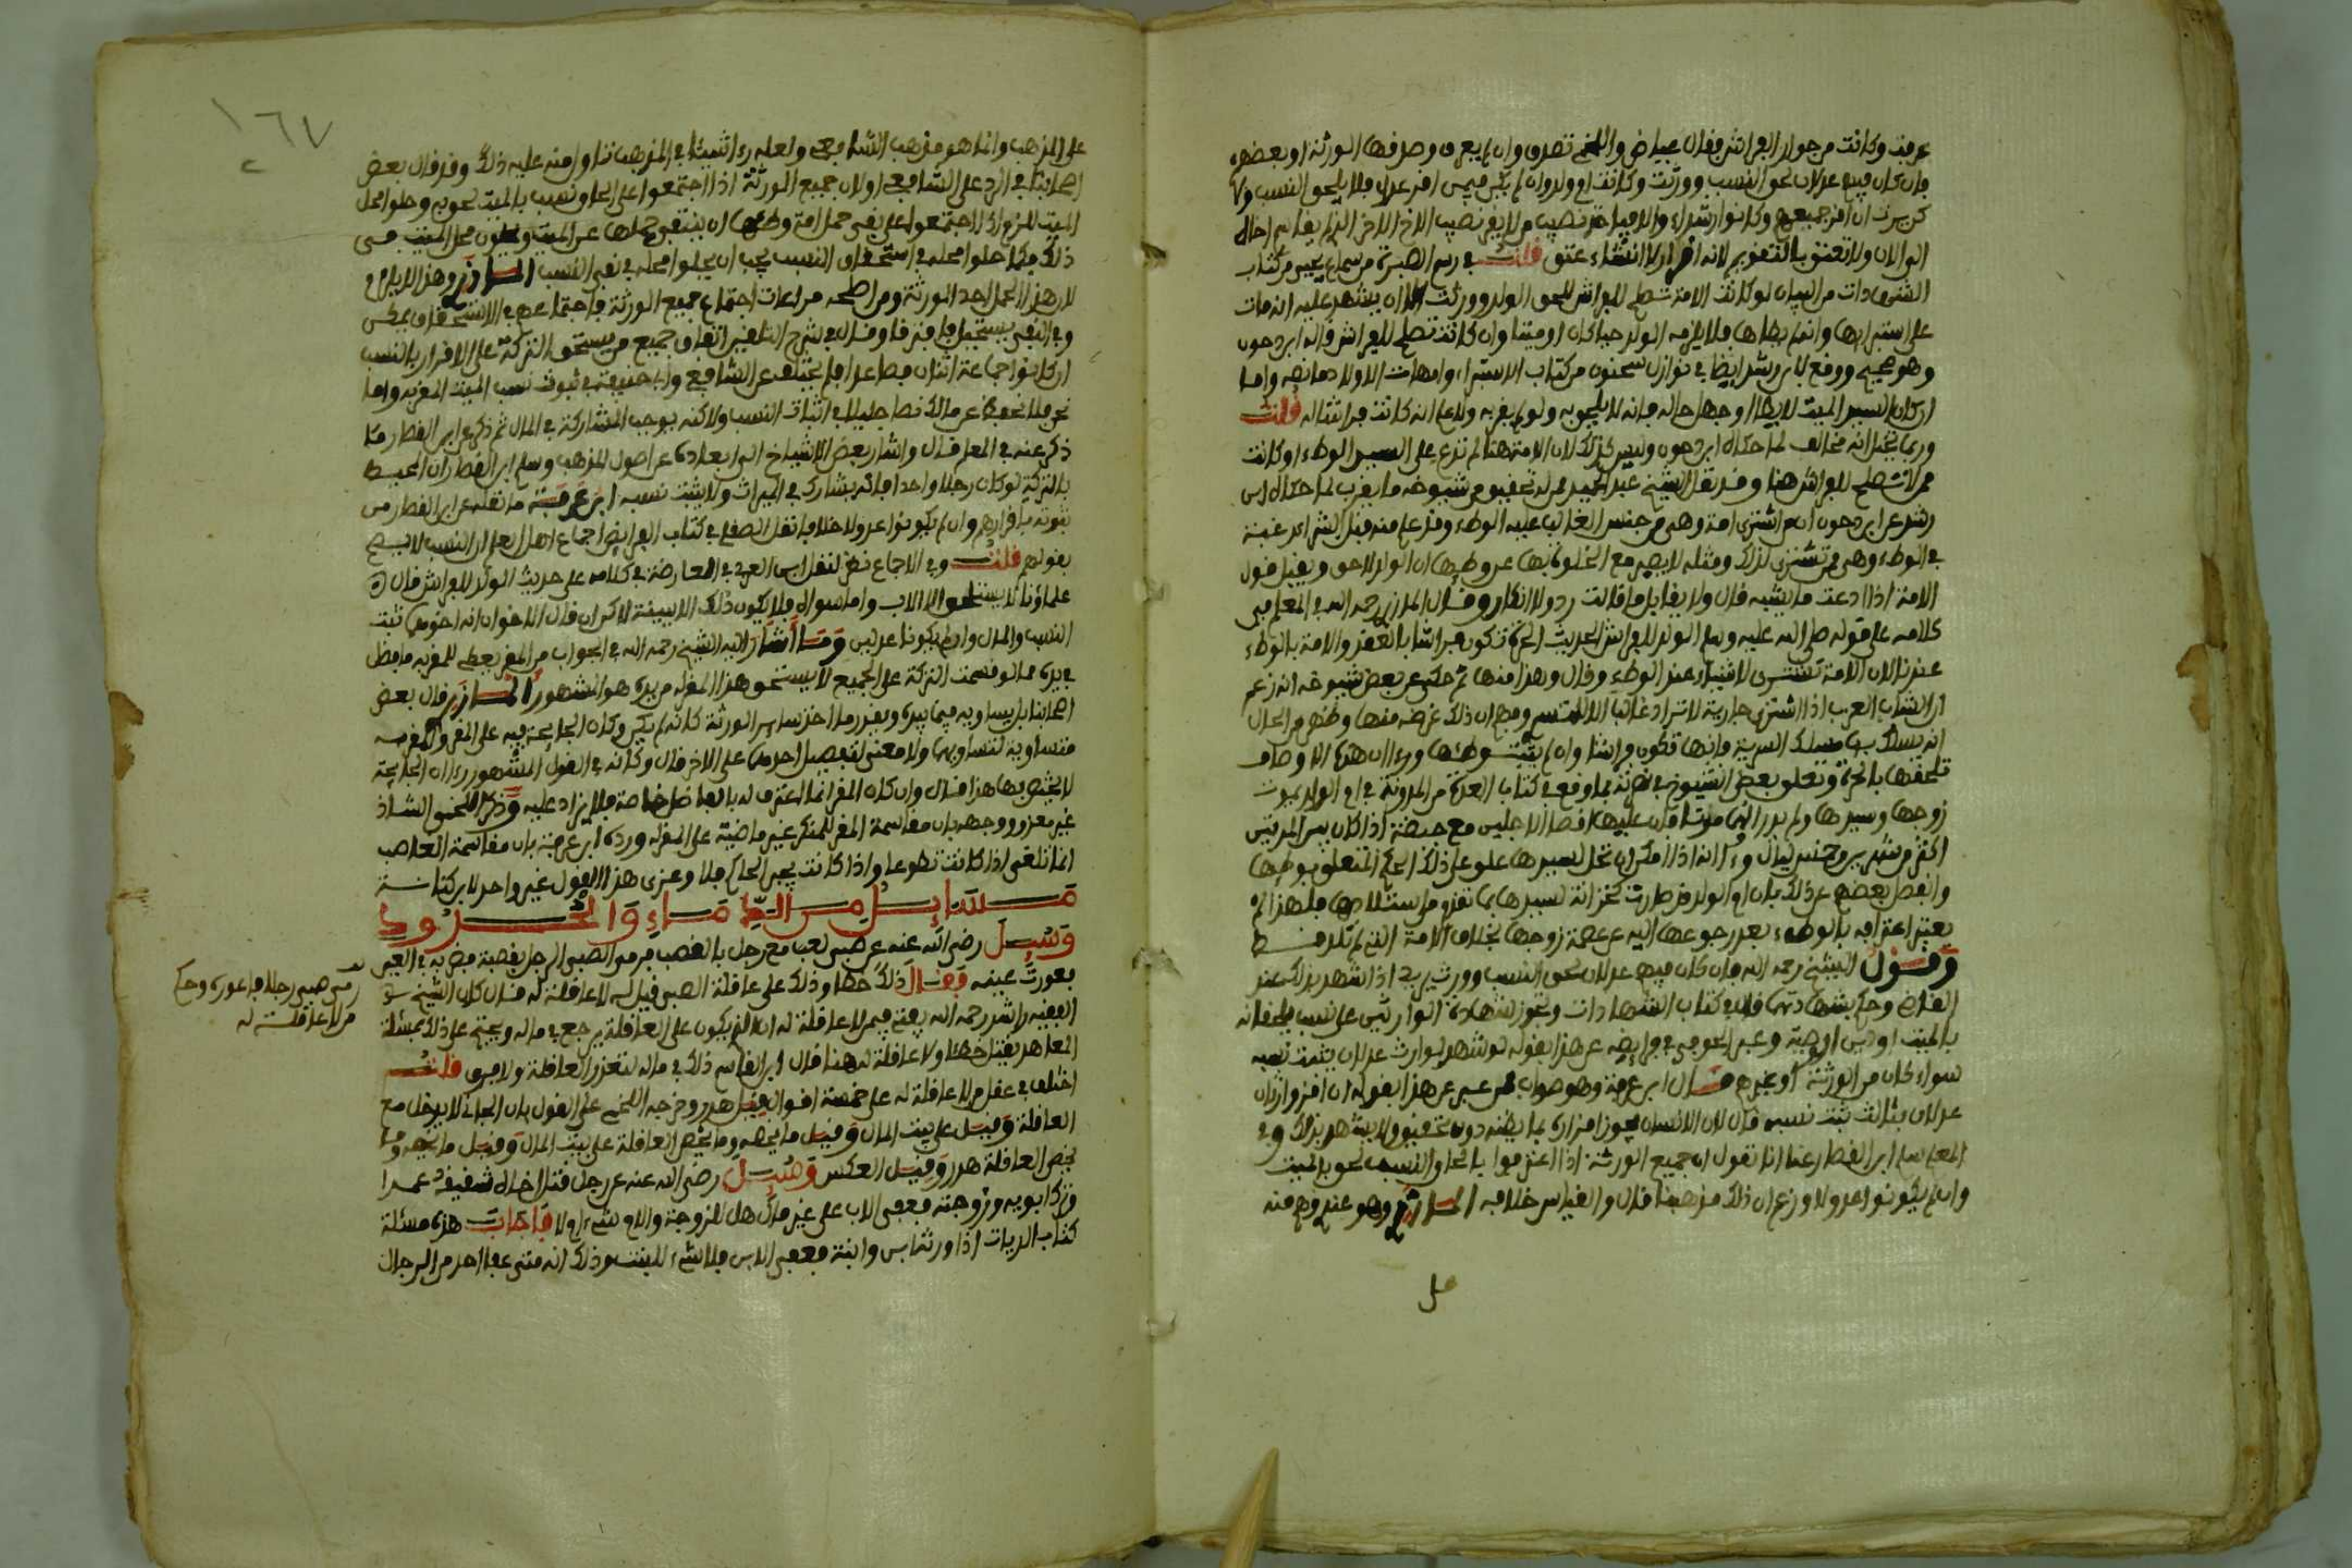 عرفت وكانت من جوار الفراش فقال عياض واللخمي تصدق وان لم يعرف وصدقها الورثة او بعضهم
فان كان فيهم عدلان لحق النسب وورثت وكانت ام ولد وان لم يكن فيمن اقر عدل فلا يلحق النسب ولا
الى الان ولا تعتق بالتقويم لانه اقرار لا انشاء عتق قلت في رسم الصبرة من سماع يحيى من كتاب
الشهادات من البيان لو كانت الامة تصلح للفراش للحق الولد وورثت الا ان يشهد عليه انه مات
على استبرائها وانه لم يطأها فلا يلزمه الولد حيا كان او ميتا وان كانت تصلح للفراش قاله ابن دحون
وهو صحيح ووقع لابن رشد ايضا في نوازل سحنون من كتاب الاستبراء وامهات الاولاد ما نصه واما
ان كان السيد الميت لا يطأ او جهل حاله فانه لا يلحق به ولو لم يقر به ولا علم انه كانت فراشا له قلت
وربما يتخيل انه مخالف لما حكاه ابن دحون وليس كذلك لان الامة هنا لم تدع على السيد الوطء او كانت
ممن لا تصلح للفراش هنا وقد نقل الشيخ عبد الحميد عمن له تحقيق من شيوخه ما يقرب لما حكاه ابن
رشد عن ابن دحون انه من اشترى امة وهي من جنس الغالب عليه الوطء وقد علم منه قبل الشراء رغبة
في الوطء وهي ممن تشترى لذلك ومثله لا يصبر مع الخلوة بها عن وطئها ان الولد لاحق ويقبل قول
الامة اذا ادعت ما يشبه قال ولا يقابل ما قالت رد ولا انكار وقال المازري رحمه الله في المعلم في
كلامه على قوله صلى الله عليه وسلم الولد للفراش الحديث الحرة تكون فراشا بالعقد والامة بالوطء
عندنا لان الامة تشترى لاشياء غير الوطء وقال وهذا منها ثم حكى عن بعض شيوخه انه زعم
ان الشباب العرب اذا اشترى جارية لا تراد غالبا الا للتسري وفهم ان ذلك غرضه منها وظهر من الحال
انه يسلك بها مسلك السرية فانها تكون فراشا وان لم يثبت وطئها ورءا ان هذه الاوصاف
تلحقها بالحرة وتعلق بعض الشيوخ في هذا بما وقع في كتاب العدة من المدونة في ام الولد يموت
زوجها وسيدها ولم يدر ايهما مات قبل عليها اقصى الاجلين مع حيضة اذا كان بين الموتين
اكثر من شهرين وخمس ليال ورءا انه اذا امكن ان تحل لسيدها علق على ذلك الحكم المتعلق بوطئها
وانفصل بعضهم عن ذلك بان ام الولد قد صارت كخزانة لسيدها بما تقدم من استيلادها فلهذا لم
يعتبر اعترافه بالوطء بعد رجوعها اليه من عصمة زوجها بخلاف الامة التي لم تلد قط
وقول الشيخ رحمه الله فان كان فيهم عدلان لحق النسب وورث يريد اذا شهد بذلك عند
القاضي وحكم بشهادتهما قال في كتاب الشهادات وتجوز شهادة الوارثين على نسب يلحقانه
بالميت او دين او وصية وعبر الحوفي في فرايضه عن هذا بقوله لو شهد لوارث عدلان يثبت نسبه
سواء كان من الورثة او غيرهم قال ابن عرفة وهو صواب ممن عبر عن هذا بقوله ان اقر وارثان
عدلان بثالث ثبت نسبه قال لان الانسان يجوز اقراره بما يظنه دون تحقيق ولا يشهد بذلك وفي
المعلم سلم ابن القصار عنا انا نقول ان جميع الورثة اذا اعترفوا بالحاق النسب لحق بالميت
وان لم يكونوا عدولا وزعم ان ذلك مذهبنا قال والقياس خلافه المازري وهو عندي وهم منه
على
١٦٧
على المذهب وانما هو مذهب الشافعي ولعله رءا شيئا في المذهب تناوله منه عليه ذلك وقد قال بعض
اصحابنا في الرد على الشافعي اولان جميع الورثة اذا اجتمعوا على الحاق نسب بالميت لحق به وحلوا محل
الميت للزم اذا اجتمعوا على نفي حمل امة وطئها ان ينتفي حملها عن الميت ويحلون محل الميت في
ذلك فكما حلوا محله في استلحاق النسب يجب ان يحلوا محله في نفي النسب المازري وهذا لا يلزم
لان هذا لا يحل احد الورثة ومن اصله مراعات اجتماع جميع الورثة فاجتماعهم في الاستلحاق يمكن
وفي النفي يستحيل فافترقا وقال في شرح التلقين اتفاق جميع من يستحق التركة على الاقرار بالنسب
ان كانوا جماعة اثنان فصاعدا فلم يختلف عن الشافعي وابي حنيفة في ثبوت نسب الميت المقر به واما
نحن فلا نحفظ عن مالك نصا جليا في اثبات النسب ولاكنه يوجب المشاركة في المال ثم ذكر عن ابن القصار ما
ذكر عنه في المعلم قال واشار بعض الاشياخ الى ابعاده عن اصول المذهب وسلم ابن القصار ان المحيط
بالتركة لو كان رجلا واحدا فانه يشارك في الميراث ولا يثبت نسبه ابن عرفة ما نقله عن ابن القصار من
ثبوته باقرارهم وان لم يكونوا عدولا خلاف نقل الصقلي في كتاب الفرايض اجماع اهل العلم ان النسب لا يثبت
بقولهم قلت وفي الاجماع نظر لنقل ابن العربي في العارضة في كلامه على حديث الولد للفراش قال
علماؤنا لا يستلحق الا الاب واما سواه فلا يكون ذلك الا ببينة لاكن ان قال الاخوان انه اخوهما ثبت
النسب والمال وان لم يكونا عدلين وما اشار اليه الشيخ رحمه الله في الجواب من المقر يعطي للمقر به ما فضل
في يده عما لو قسمت التركة على الجميع لا يستحق هذا المقر له من يده هو المشهور المازري قال بعض
اصحابنا بل يساويه فيما بيده ويقدر ما اخذ ساير الورثة كانه لم يكن وكان الجايحة فيه على المقر والمقر به
متساوية لتساويهما ولا معنى لتفضيل احدهما على الاخر قال وكانه في القول المشهور رءا ان الجايحة
لا يختص بها هذا قال وان كان المقر انما اعترف له بالفاضل خاصة فلا يزاد عليه وذكر اللخمي الشاذ
غير معزو ووجهه بان مقاسمة المقر للمنكر غير ماضية على المقر له ورده ابن عرفة بان مقاسمة الغاصب
انما تلغى اذا كانت تطوعا واذا كانت بجبر الحاكم فلا وعزى هذا القول غير واحد لابن كنانة
مسائل من الدماء والحدود
وسئل رضي الله عنه عن صبي لعب مع رجل بالقصب فرمى الصبي الرجل بقصبة فضربه في العين
فعورت عينه فقال ذلك خطأ وذلك على عاقلة الصبي قيل له لا عاقلة له قال كان الشيخ
الفقيه راشد رحمه الله يفتي فيمن لا عاقلة له ان الغرم يكون على العاقلة يرجع في ماله ويحتج على ذلك بمسئلة
المعاهد يقتل خطأ ولا عاقلة له هنا قال ابن القاسم ذلك في ماله لتعذر العاقلة ولا فرق قلت
اختلف في عقل من لا عاقلة له على خمسة اقوال فقيل هدر وخرجه اللخمي على القول بان الجاني لا يدخل مع
العاقلة وقيل على بيت المال وقيل ما يخصه وما يخص العاقلة على بيت المال وقيل ما يخصه وما
يخص العاقلة هدر وقيل العكس وسئل رضي الله عنه عن رجل قتل اخاه شقيقه عمدا
وترك ابويه وزوجته فعفى الاب على غير مال هل للزوجة والام شيء ام لا فاجاب هذه مسئلة
كتاب الديات اذا ورثه ابن وابنة فعفى الابن فلا شيء للبنت وذلك انه متى عفا احد من الرجال
رمى صبي رجلا فاعوره وحكم
من لا عاقلة له